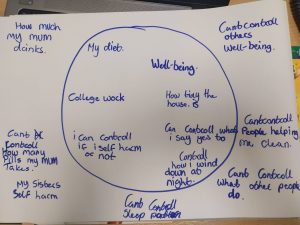 How much
my mum
drinks.
Cant controll
others
Well-being.
My diet.
Well-being.
College work
How tidy the
house. is
i can Controll
if i self harm
or not
Can Controll what
i say yes to
Controll
how i wind
down at
night.
Cant
Controll
How many
Pills my mum
takes.
My Sisters
Self harm
Cant controll
People helping
me clean.
Cant Controll
What other people
do.
Cant Controll
Sleep pattern